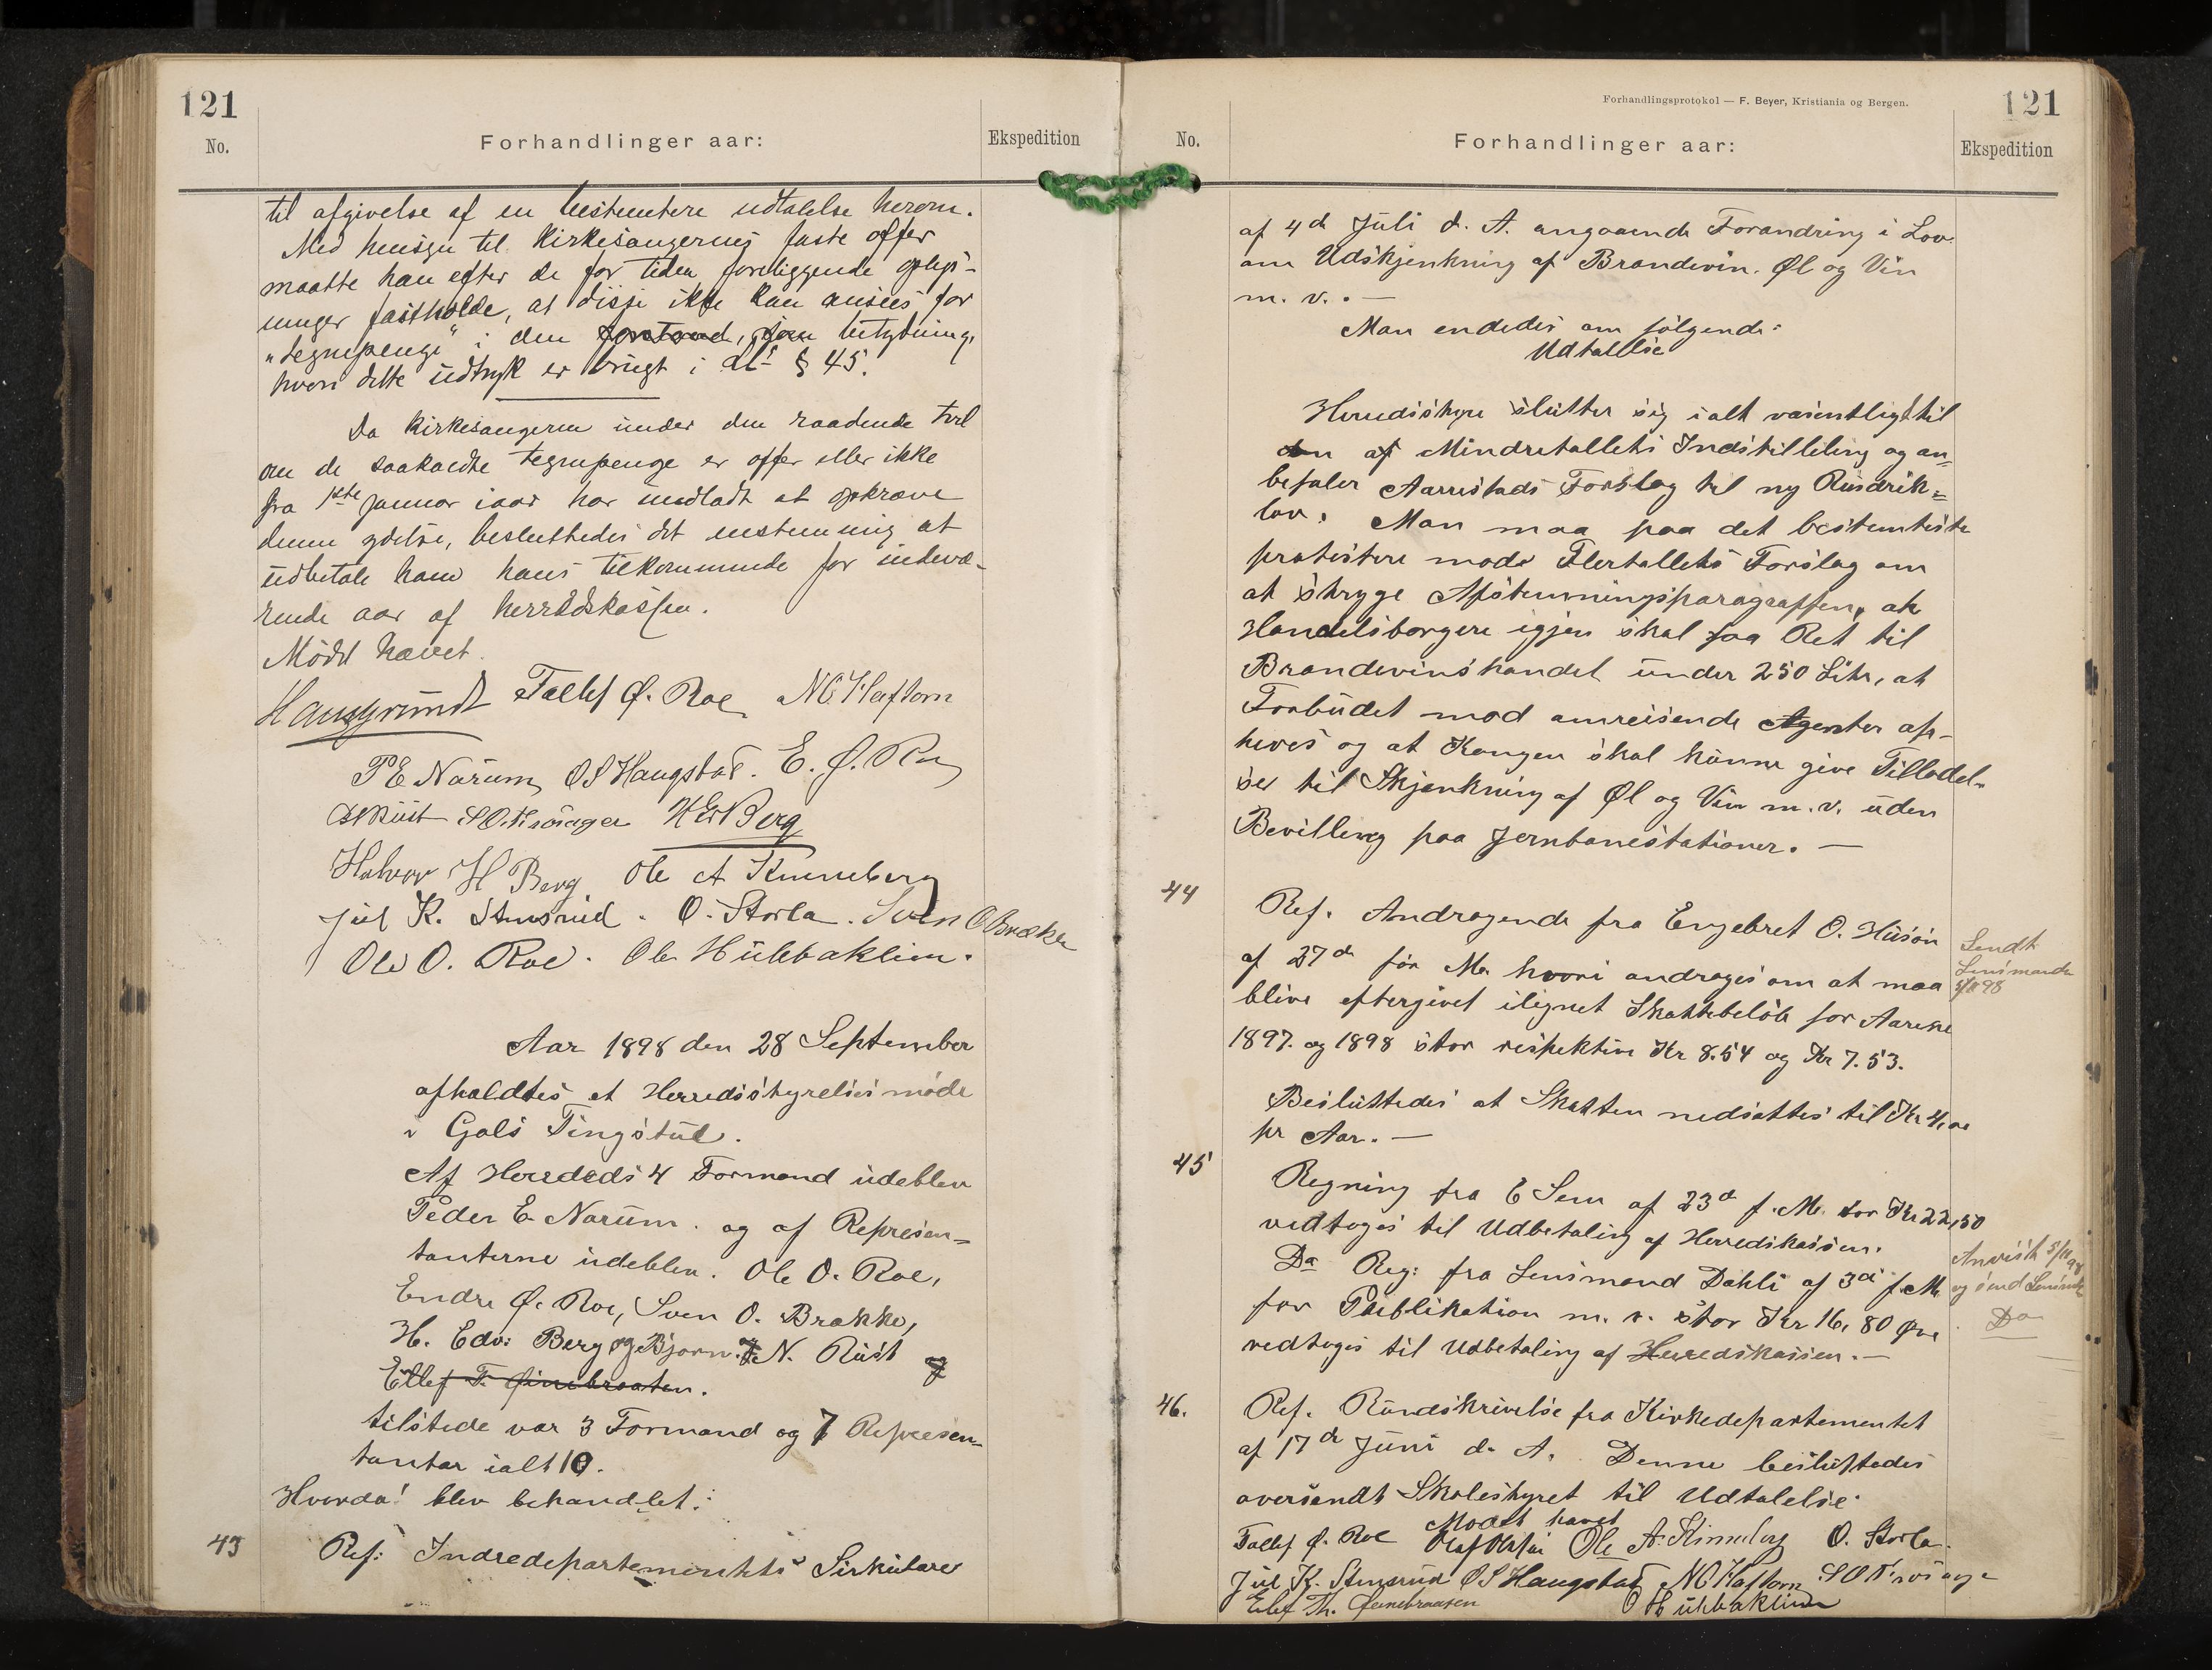 121
No.
Forhandlinger aar:
Ekspedition
til afgivelse af en bestemtere udtalelse herom.
Med hensyn til kirkesangernes faste offer
maatte han efter de for tiden foreliggende oplys-
ninger fastholde, at disse ikke kan ansees for
"tegnepenge" i den forstand, som betydning,
hvori dette udtryk er brugt i § 45.
Da kirkesangeren under den raadende tvil
om de saakaldte tegnepenge er offer eller ikke
fra 1ste januar iaar har undladt at opkræve
denne ydelse, besluttedes det enstemmig at
udbetale ham hans tilkommende for indevæ-
rende aar af herredskassen.
Mødet hævet.
Haugrundt Tollef Ø. Roe N.O. Haftorn
P E Narum, O S Haugstad. E. Ø. Roe
S.O. Trøsager H Edv Berg
Halvor H Berg Ole A Kinneberg
Jul K. Stensrud. O. Storla. Sven O Brække
Ole O. Roe. Ole Hulbaklien.
Aar 1898 den 28 September
afholdtes et Herredsstyrelsesmøde
i Gols Tingstue.
Af Herredets 4 Formænd udeblev
Peder E. Narum. og af Repræsen=
tanterne udeblev. Ole O. Roe,
Endre Ø. Roe, Sven O. Brække,
H. Edv: Berg og Bjørn. N. Rust og
Ellef T. Øinebraaten.
tilstede var 3 Formænd og 7 Repræsen=
tanter ialt 10.
Hvorda! blev behandlet:
43
Ref: Indredepartementets Sirkulære
Forhandlingsprotokol — F. Beyer, Kristiania og Bergen.
121
No.
Forhandlinger aar:
Ekspedition
af 4de Juli d. A. angaaende Forandring i Lov
om Udskjenkning af Brændevin. Øl og Vin
m. v. . —
Man enedes om følgende:
Udtallelse
Herredsstyre slutter sig i alt væsentligt til
den af Mindretallets Indstilliling og an=
befaler Aarrestads Forslag til ny Rusdrik=
lov. Man maa paa det bestemteste
protestere mode Flertallets Forslag om
at stryge Afstemningsparagraffen, at
Handelsborgere igjen skal faa Ret til
Brændevinshandel under 250 Litr, at
Forbudet mod omreisende Agenter op-
hæves og at Kongen skal kunne give Tilladel=
se til Skjenkning af Øl og Vin m. v. uden
Bevilling paa Jernbanestationer. —
44
Ref. Andragende fra Engebret O. Huso
af 27de før. M. hvori andrages om at maa
blive eftergivet ilignet Skattebeløb for Aarene
1897. og 1898 stor respektive Kr 8.54 og Kr 7.53.
Sendt
Lensmanden
5/11 98
Besluttedes at Skatten nedsættes til Kr 4,00
pr Aar. —
45
Regning fra E Sem af 23de f. M. stor Kr 22,50
vedtoges til Udbetaling af Herredskassen.
Anvist 5/11 98
og send Lensmd
Da Reg: fra Lensmand Dahli af 3de f. M.
for Publikation m. v. stor Kr 16,80 Øre
vedtoges til Udbetaling af Herredskassen. —
Do
46.
Ref. Rundskrivelse fra Kirkedepartementet
af 17de Juni d. A. Denne besluttedes
oversendt Skolestyret til Udtalelse.
Mødet hævet
Tollef Ø. Roe Ole A. Kinneberg O. Storla.
Jul K. Stensrud O S Haugstad N O Haftorn S O Trøsager
Elef Th. Øinebraaten O Hulbaklien